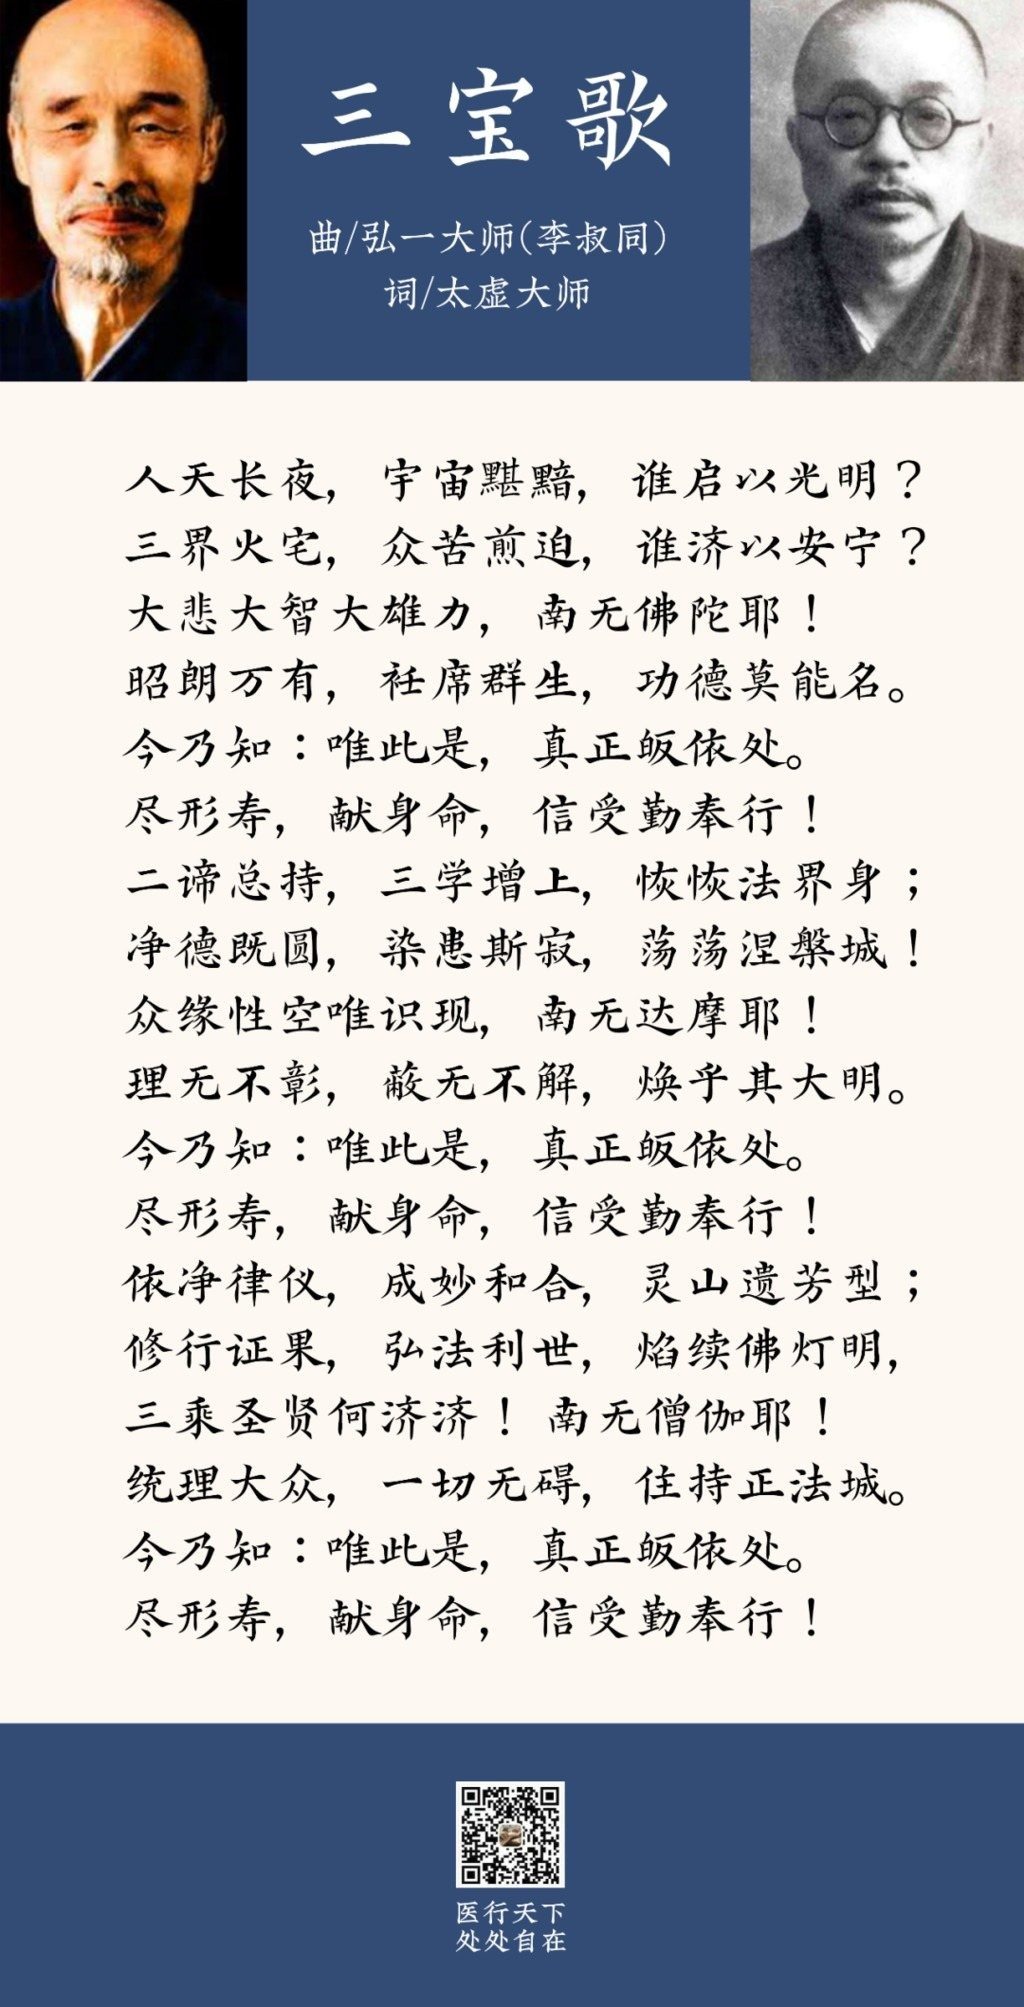 三宝歌
曲/弘一大师(李叔同)
词/太虚大师
人天长夜，宇宙黮黯，谁启以光明？
三界火宅，众苦煎迫，谁济以安宁？
大悲大智大雄力，南无佛陀耶！
昭朗万有，衽席群生，功德莫能名。
今乃知：唯此是，真正皈依处。
尽形寿，献身命，信受勤奉行！
二谛总持，三学增上，恢恢法界身；
净德既圆，染患斯寂，荡荡涅槃城！
众缘性空唯识现，南无达摩耶！
理无不彰，蔽无不解，焕乎其大明。
今乃知：唯此是，真正皈依处。
尽形寿，献身命，信受勤奉行！
依净律仪，成妙和合，灵山遗芳型；
修行证果，弘法利世，焰续佛灯明，
三乘圣贤何济济！南无僧伽耶！
统理大众，一切无碍，住持正法城。
今乃知：唯此是，真正皈依处。
尽形寿，献身命，信受勤奉行！
医行天下
处处自在